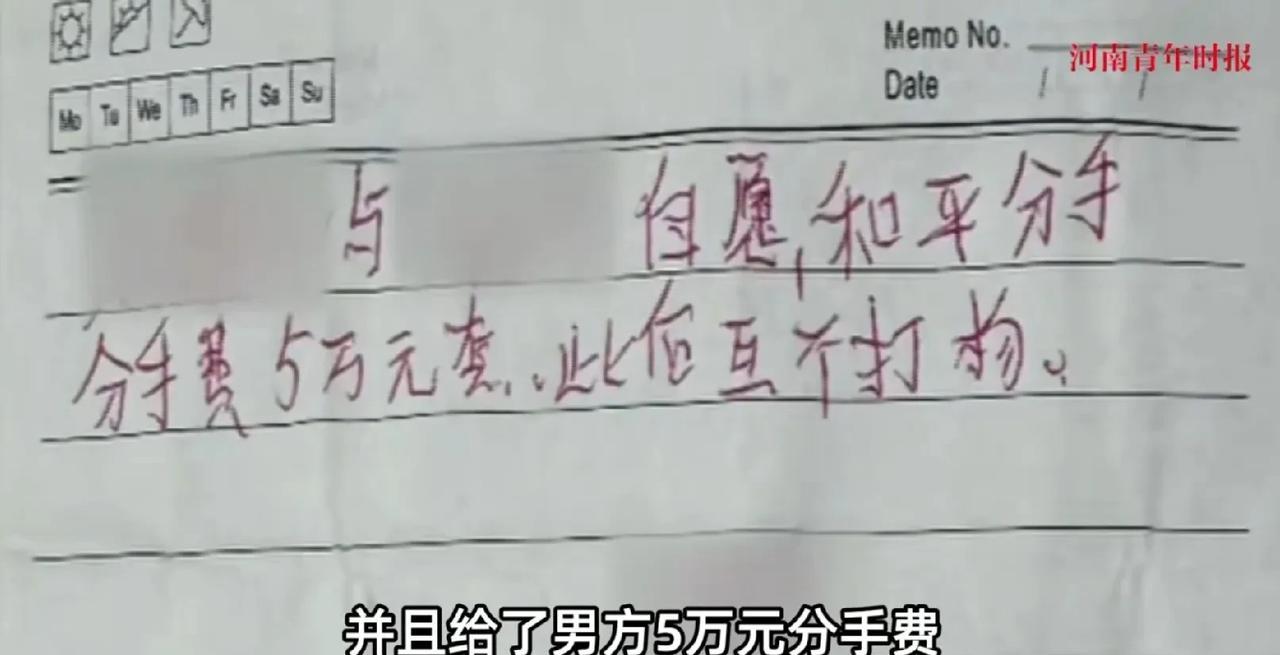 Memo No.
河南青年时报
Date / /
Mo Tu We Th Fr Sa Su
与 自愿,和平分手
分手费5万元整.此后互不打扰。
并且给了男方5万元分手费